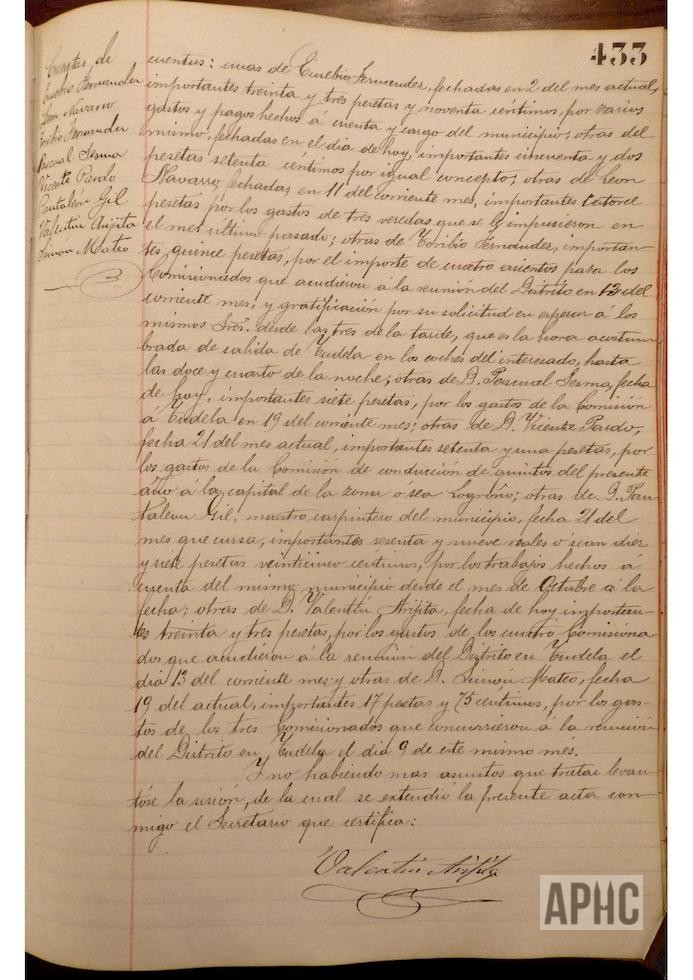 433
Cuentas de
Eusebio Fernandez
Leon Navarro
Toribio Fernandez
Pascual Sesma
Vicente Pardo
Pantaleón Gil
Valentin Arijita
Simon Mateo
cuentas: unas de Eusebio Fernandez, fechadas en 2 del mes actual,
importantes treinta y tres pesetas y noventa céntimos, por varios
gastos y pagos hechos á cuenta y cargo del municipio; otras del
mismo, fechadas en el dia de hoy, importantes cincuenta y dos
pesetas setenta céntimos por igual concepto; otras de Leon
Navarro, fechadas en 11 del corriente mes, importantes catorce
pesetas por los gastos de tres veredas que se le impusieron en
el mes ultimo pasado; otras de Toribio Fernandez, importan-
tes quince pesetas, por el importe de cuatro asientos para los
Comisionados que acudieron á la reunión del Distrito en 13 del
corriente mes, y gratificación por su solicitud en esperar á los
mismos Sres. desde las tres de la tarde, que es la hora acostum
brada de salida de Tudela en los coches del interesado, hasta
las doce y cuarto de la noche; otras de D. Pascual Sesma, fecha
de hoy, importantes siete pesetas, por los gastos de la Comisión
á Tudela en 19 del corriente mes; otras de D. Vicente Pardo,
fecha 21 del mes actual, importantes setenta y una pesetas, por
los gastos de la Comisión de conducción de quintos del presente
año á la capital de la zona ó sea Logroño; otras de D. Pan
taleon Gil, maestro carpintero del municipio, fecha 21 del
mes que cursa, importantes sesenta y nueve reales ó sean diez
y siete pesetas veinticinco céntimos, por los trabajos hechos á
cuenta del mismo municipio desde el mes de Octubre á la
fecha; otras de D. Valentín Arijita, fecha de hoy importan-
tes treinta y tres pesetas, por los gastos de los cuatro Comisiona
dos que acudieron á la reunión del Distrito en Tudela el
dia 13 del corriente mes y otras de D. Simón Mateo, fecha
19 del actual, importantes 17 pesetas y 75 céntimos, por los gas-
tos de los tres Comisionados que concurrieron á la reunión
del Distrito en Tudela el dia 9 de este mismo mes.
Y no habiendo mas asuntos que tratar levan-
tóse la sesión, de la cual se extendió la presente acta con-
migo el Secretario que certifica:
Valentin Arijita
APHC